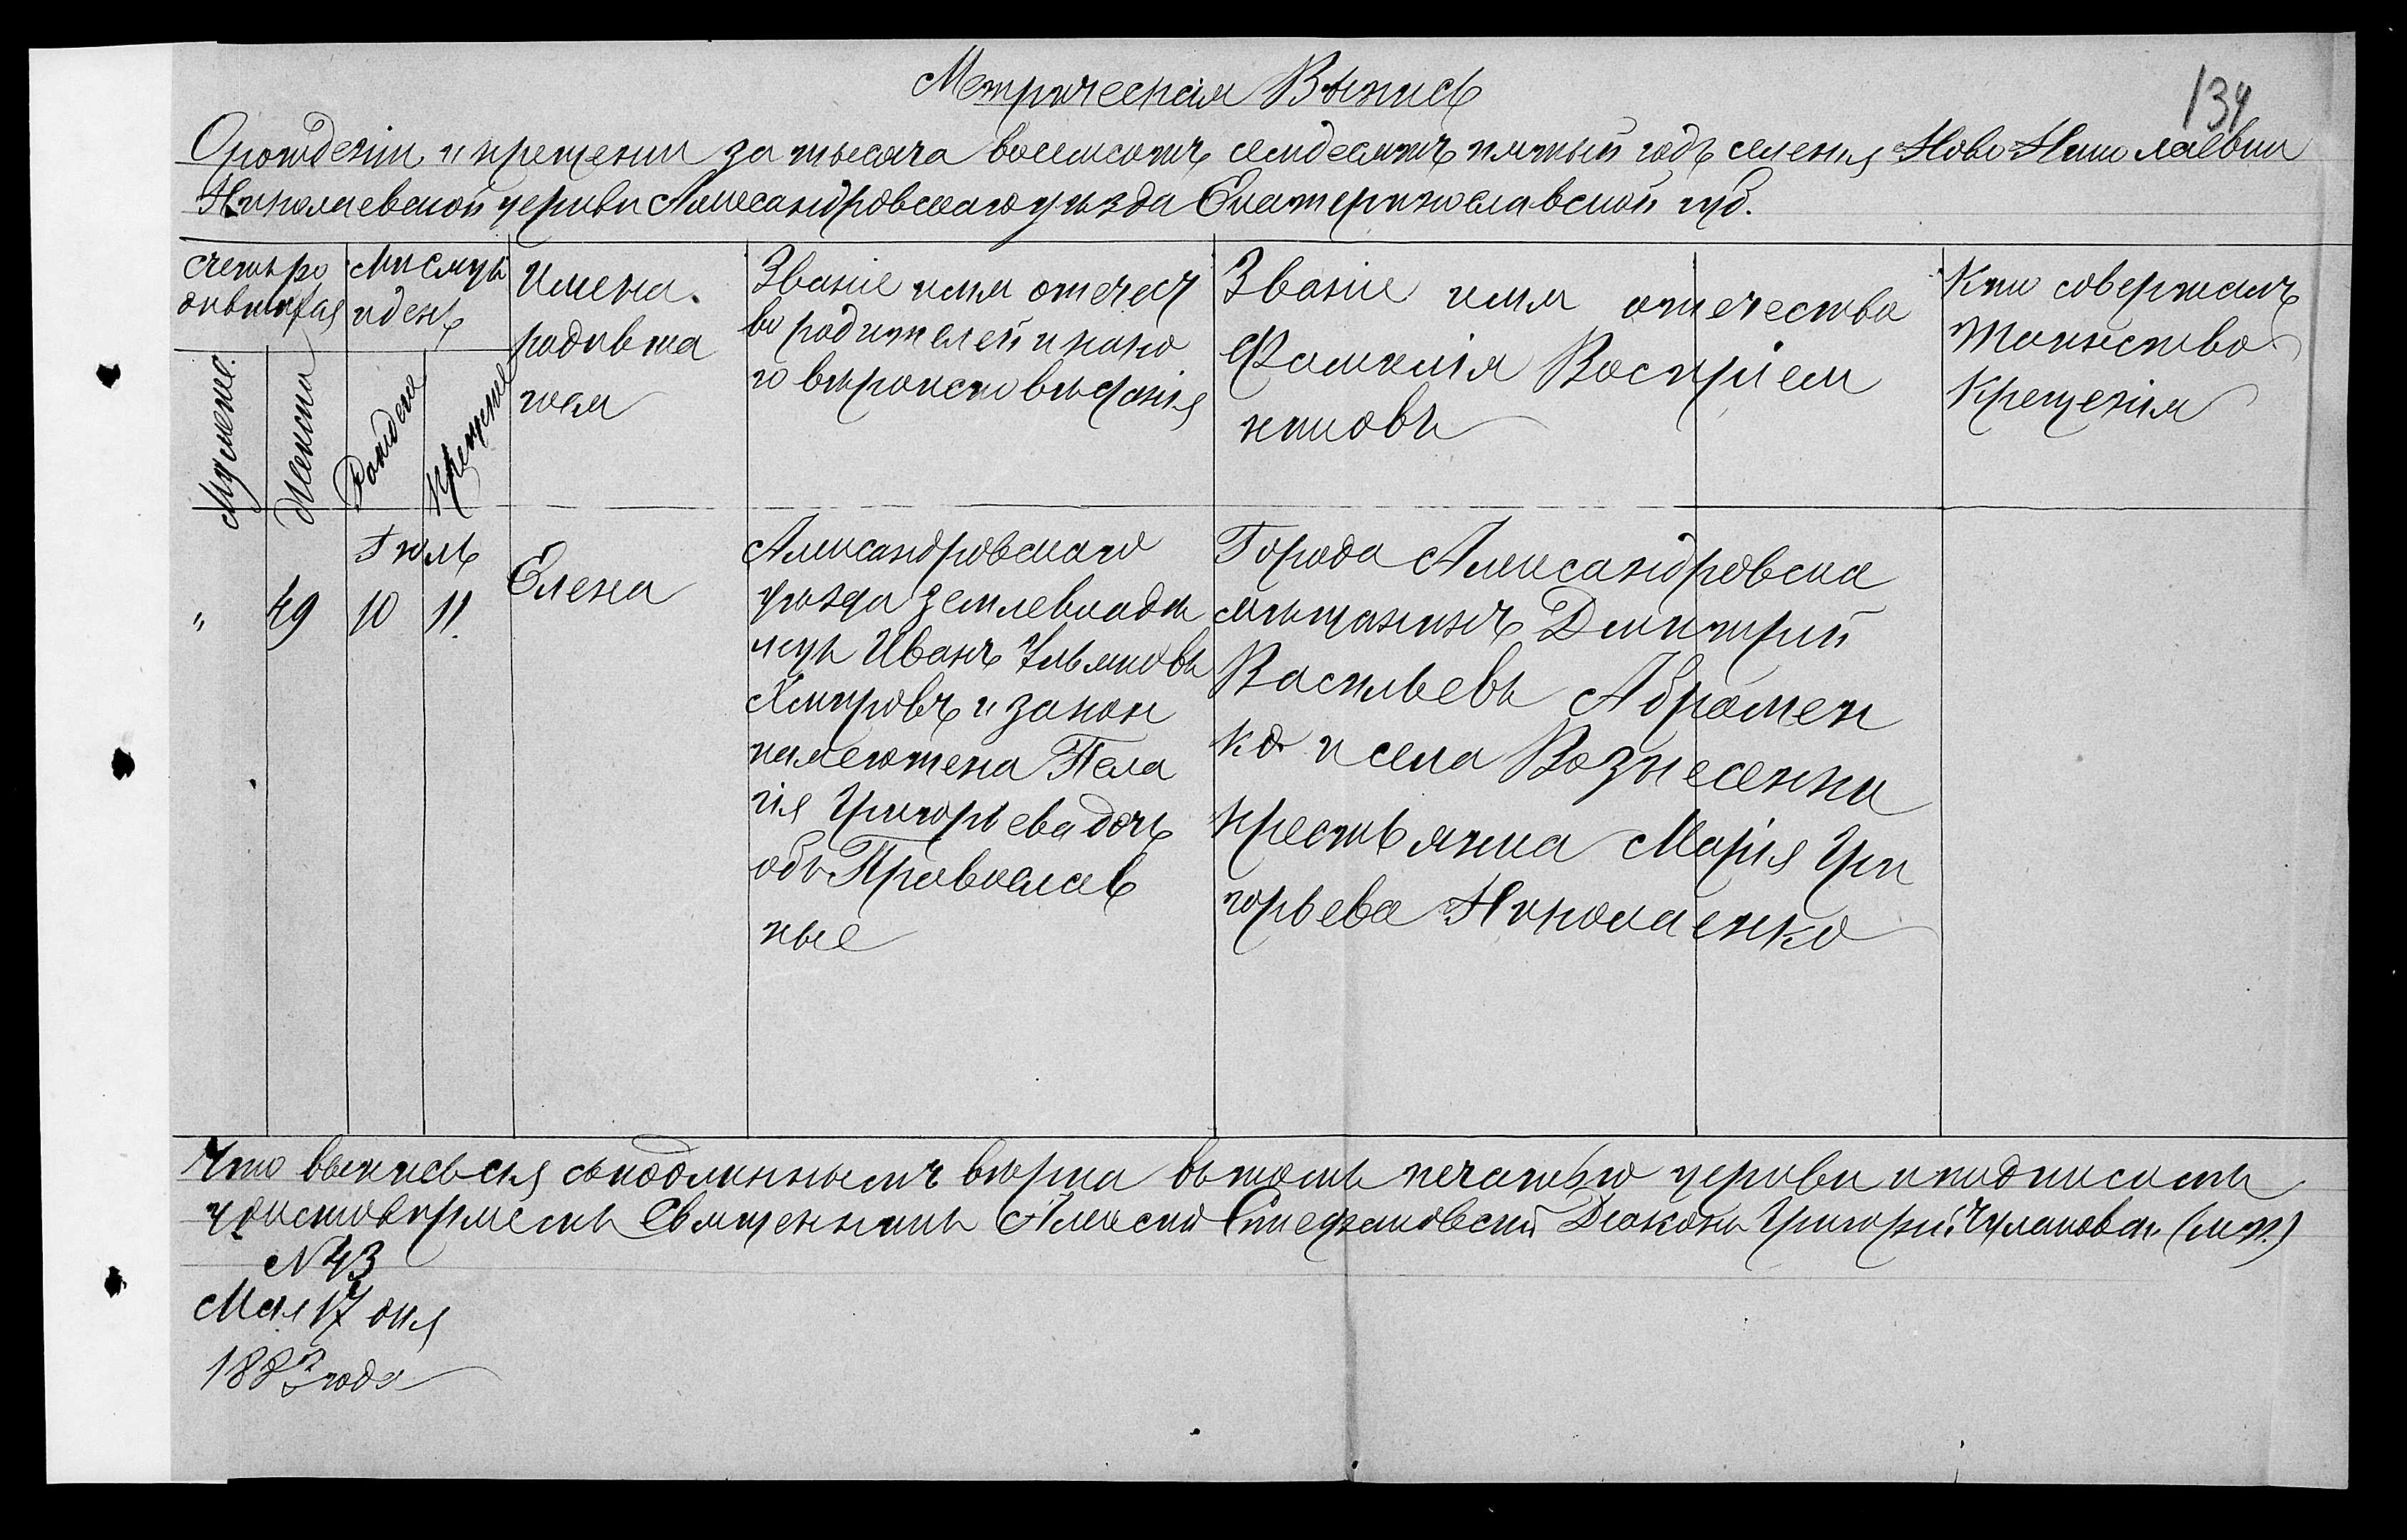 134
Метрическая Выпись
О рождении и крещении за тысяча восемсотъ семдесятъ пятый годъ селения Ново Николаевки
Николаевской церкви Александровскаго уѣзда Екатеринославской губ.
счетъ ро
дившихся
Мужеска.
Женска
Мѣсяцъ
и день
Рожденія
Крещенія
Имена.
родивша
гося
Званіе имя отечест
во родителей и како
го вѣроисповѣданія
Званіе имя отечество
Фамилія Воспріем
никовъ
Кто совершалъ
Таинство
Крещенія
Іюль
" 49 10 11.
Елена
Александровскаго
уѣзда землевладѣ
лецъ Иванъ Ульяновъ
Хмаровъ и закон
ная его жена Пела
гія Григорьева дочь
оба Православ
ные
Города Александровска
мѣщанинъ Дмитрій
Васильевъ Абрамен
ко и села Вознесенки
крестьянка Марія Гри
горьева Николаенко
Что выпись сія съ подлиннымъ вѣрна въ томъ печатью церкви и подписомъ
удостовѣряемъ Священникъ Алексій Стефановскій Діаконъ Григорій (м.п.)
N 43
Мая 17 дня
1883 года